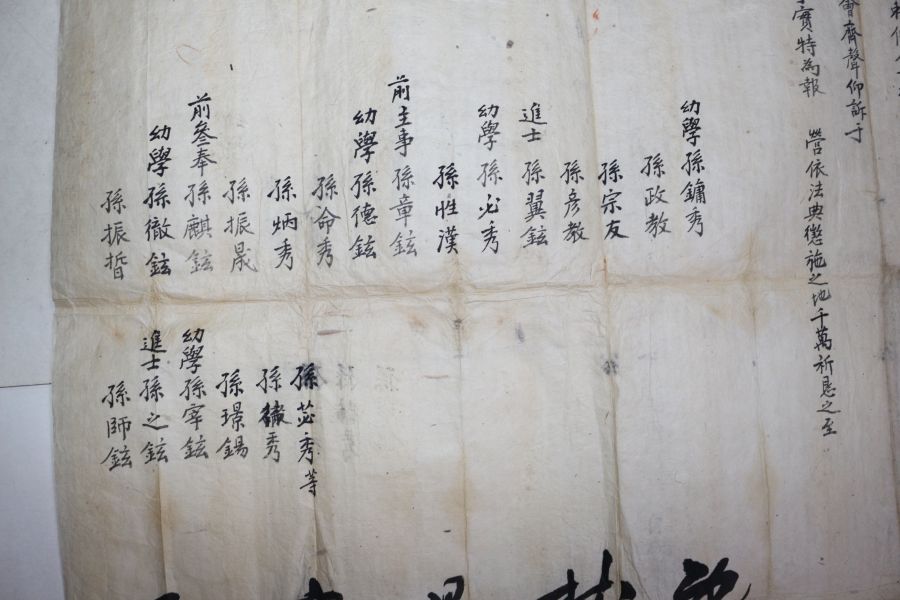 會齊聲仰訴寸
實特為報 營依法典懲施之地千萬祈恳之至
幼學孫鏞秀
孫政教
孫宗友
孫彦教
進士 孫翼鉉
幼學 孫必秀
孫性漢
前主事 孫章鉉
幼學 孫德鉉
孫命秀
孫炳秀
孫振晟
前參奉 孫麒鉉
幼學 孫徹鉉
孫振晢
孫苾秀等
孫秀
孫璟錫
幼學孫宰鉉
進士孫之鉉
孫師鉉